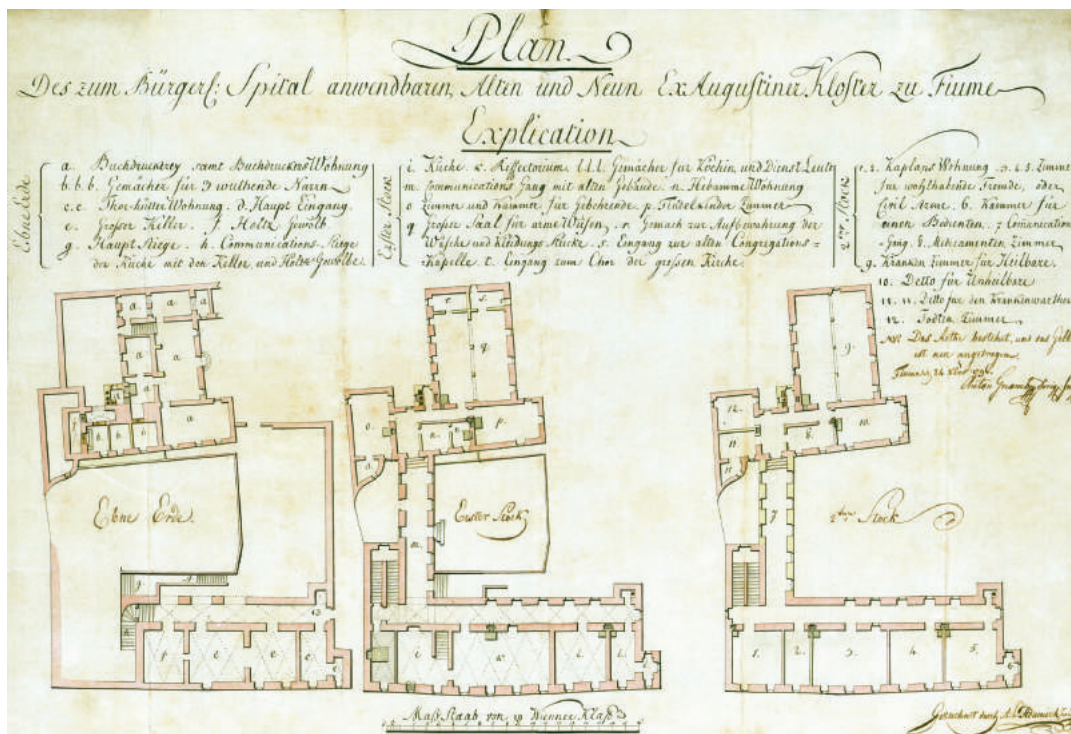 Plan
Des zum Bürgerl: Spital anwendbaren, Alten und Neun Ex Augustiner Kloster zu Fiume
Explication
Ebne Erde
a. Buchdruckerey samt Buchdruckers Wohnung
b. b. b. Gemächer für 3 wuthende Narrn
c. c. Thor-hütter Wohnung. d. Haupt Eingang.
e. Großer Keller. f. Holtz Gewölb.
g. Haupt Stiege. h. Communications-Stiege
der Küche mit den Keller, und Holtz-Gewölbe.
Erster Stock
i. Küche. k. Reffectorium. l. l. l. Gemächer für Köchin, und Dienst Leute
m. Communications Gang mit alten Gebäude. n. Hebamme Wohnung
o. Zimmer und Kammer für Gebehrende. p. Findelkinder Zimmer
q. Großer Saal für arme Waisen. r. Gemach zur Aufbewahrung der
Wäsche und Kleidungs Stücke. s. Eingang zur alten Congregations-
Kapelle. t. Eingang zum Chor der großen Kirche.
2ter Stock
1. 2. Kaplans Wohnung. 3. 4. 5. Zimmer
für wohlhabende Fremde, oder
Civil Arme. 6. Kammer für
einen Bedienten. 7. Comunications-
Gang. 8. Medicamenten Zimmer
9. Kranken Zimmer für Heilbare.
10. Detto für Unheilbare
11. 11. Detto für den Krankenwarther
12. Todten Zimmer
NB. Das Rothe bestehet, und das Gelbe
ist neu angetragen.
Fiume
a. a. a.
a. a.
a.
b. b. b.
Ebne Erde.
f. e. e. c.
q.
o. n. p.
Erster Stock
m.
i. k. l. l.
9.
12. 8. 10.
11.
11.
7
2ter Stock
1. 2. 3. 4. 5. 6.
Maß-Staab von 10 Wienner Klaft
Gezeichnet durch